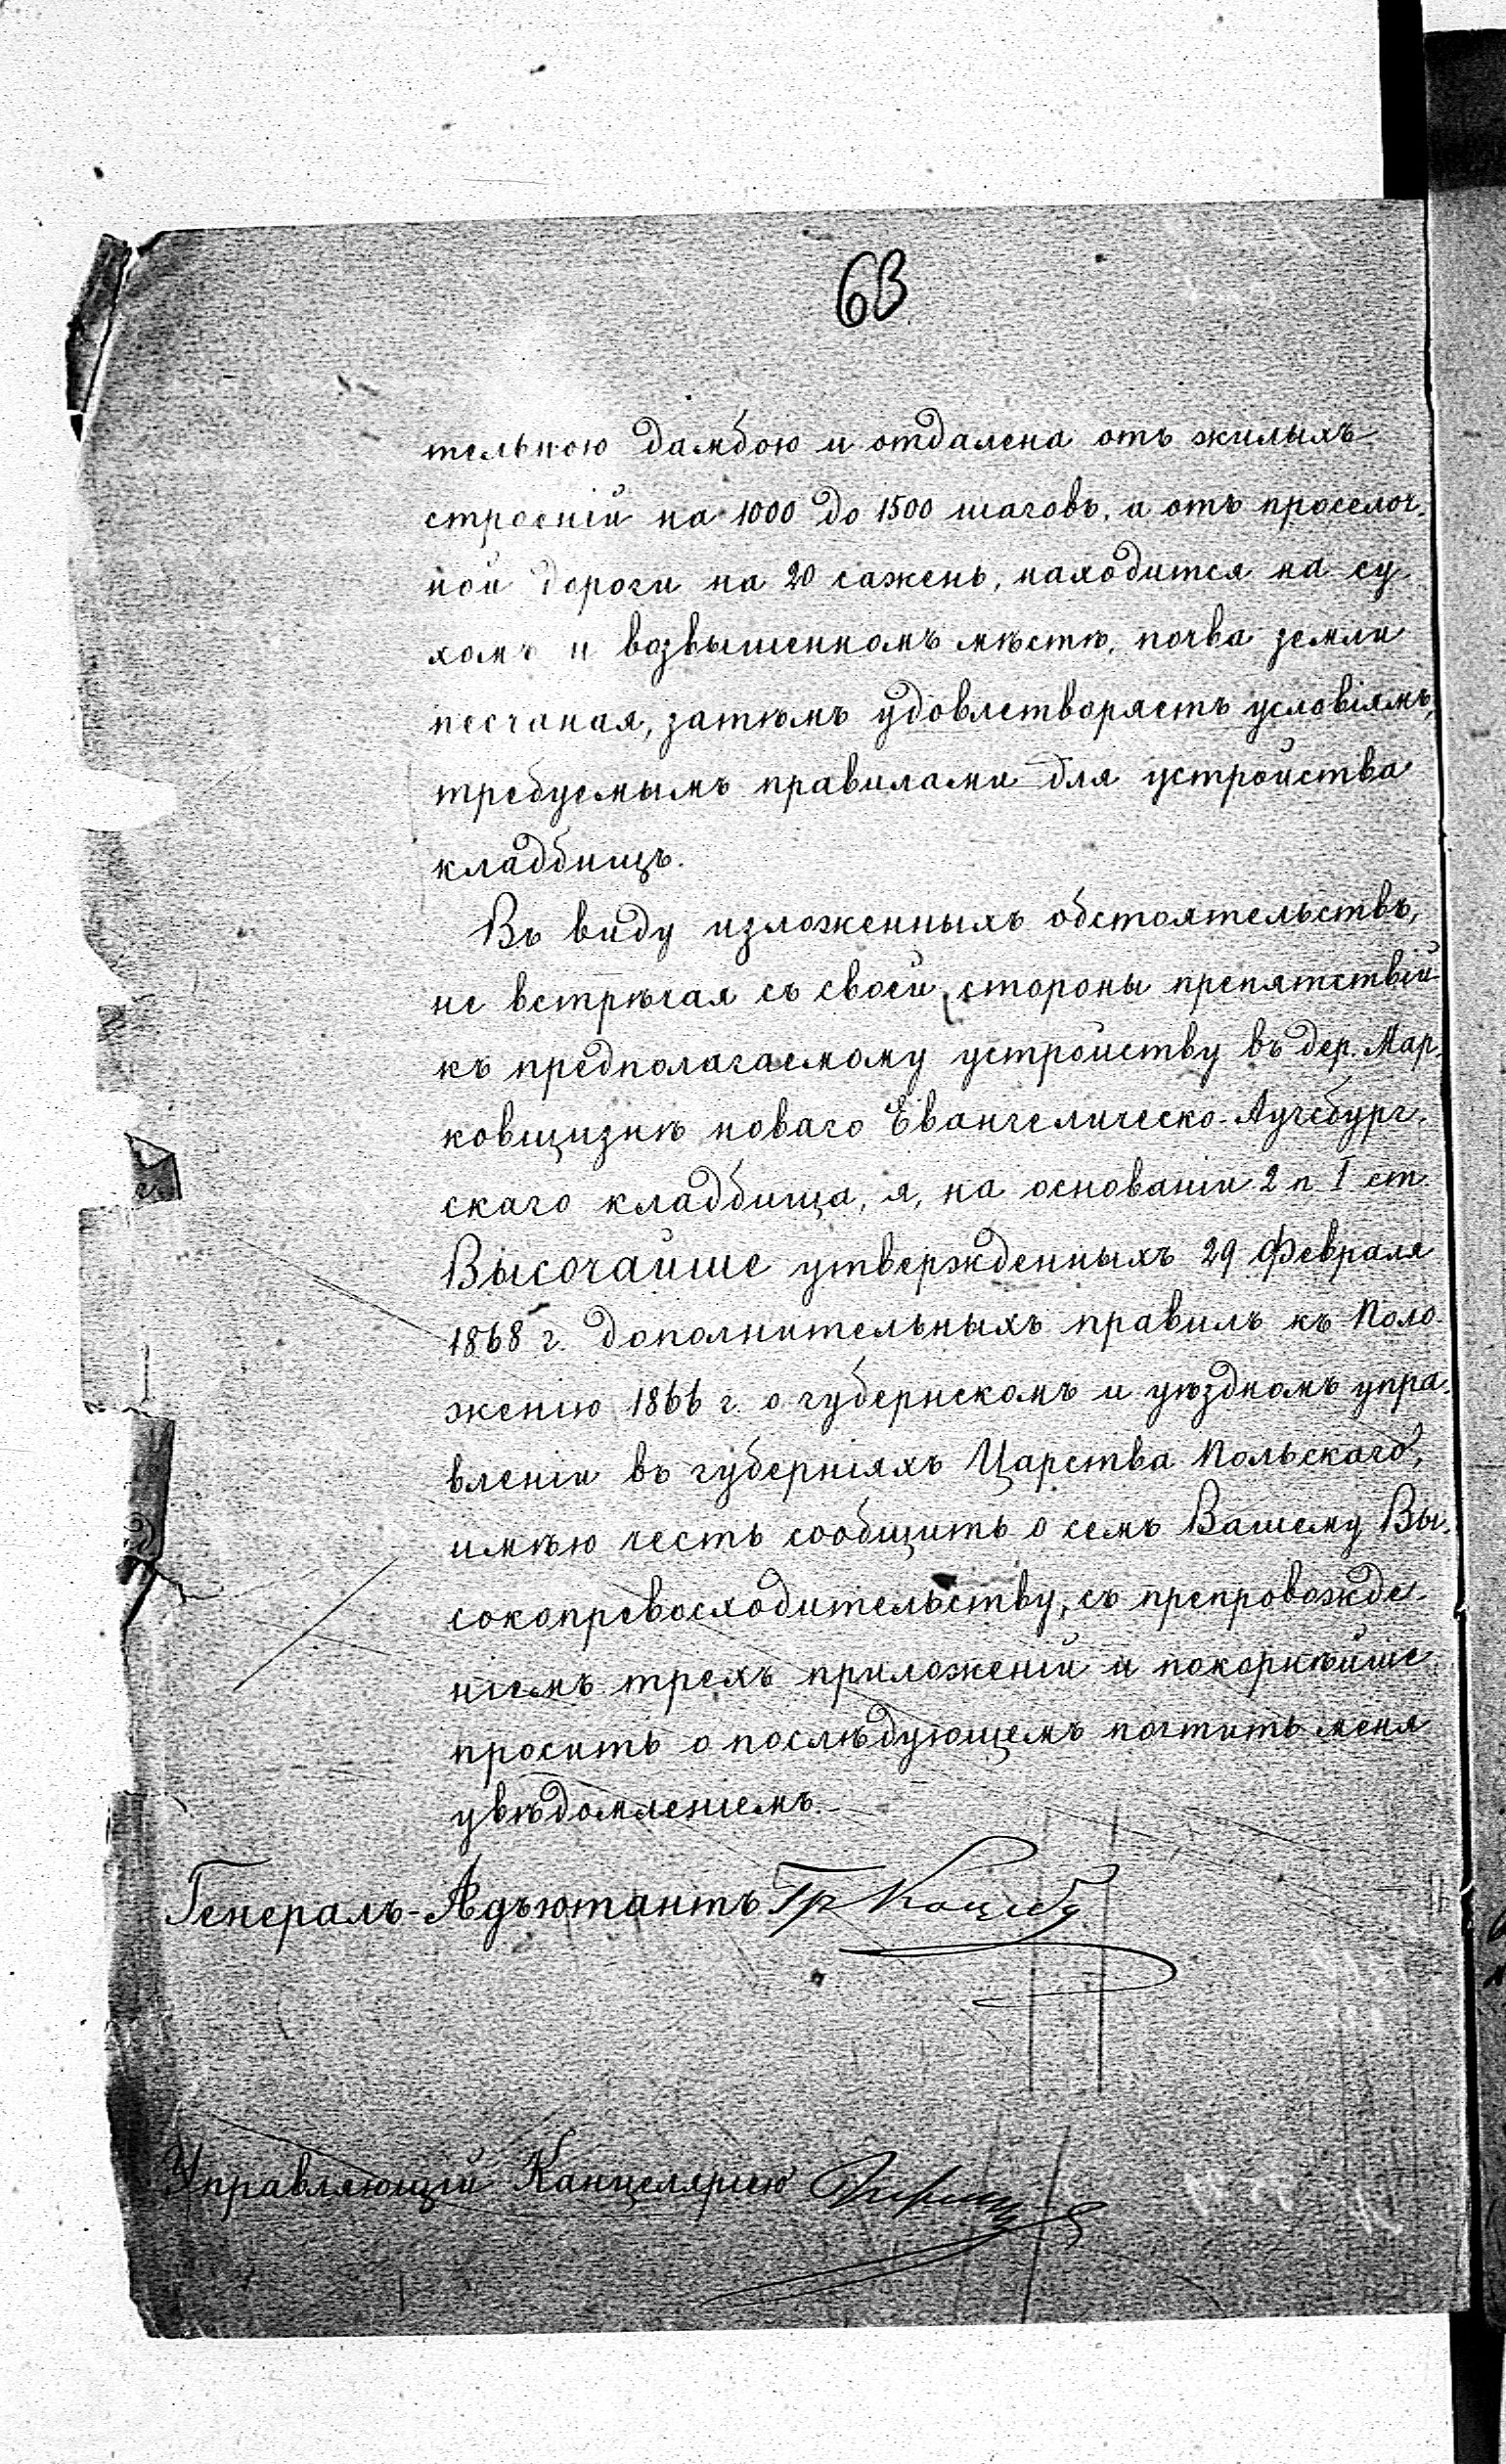 63
тельною дамбою и отдалена отъ жилыхъ
строеній на 1000 до 1500 шаговъ, а отъ проселоч-
ной дороги на 20 сажень, находится на су-
хомъ и возвышенномъ мѣстѣ, почва земли
песчаная, затѣмъ удовлетворяетъ условіямъ,
требуемымъ правилами для устройства
кладбищъ.
Въ виду изложенныхъ обстоятельствъ,
не встрѣчая съ своей стороны препятствій
къ предполагаемому устройству въ дер. Мар-
ковщизнѣ новаго Евангелическо-Аугсбург-
скаго кладбища, я, на основаніи 2 п I ст.
Высочайше утвержденныхъ 29 Февраля
1868 г. дополнительныхъ правилъ къ Поло-
женію 1866 г. о губернскомъ и уѣздномъ упра-
вленіи въ губерніяхъ Царства Польскаго,
имѣю честь сообщить о семъ Вашему Вы-
сокопревосходительству, съ препровожде-
ніемъ трехъ приложеній и покорнѣйше
просить о послѣдующемъ почтить меня
увѣдомленіемъ.
Генералъ-Адъютантъ Гр Коцебу
Управляющій Канцеляріею